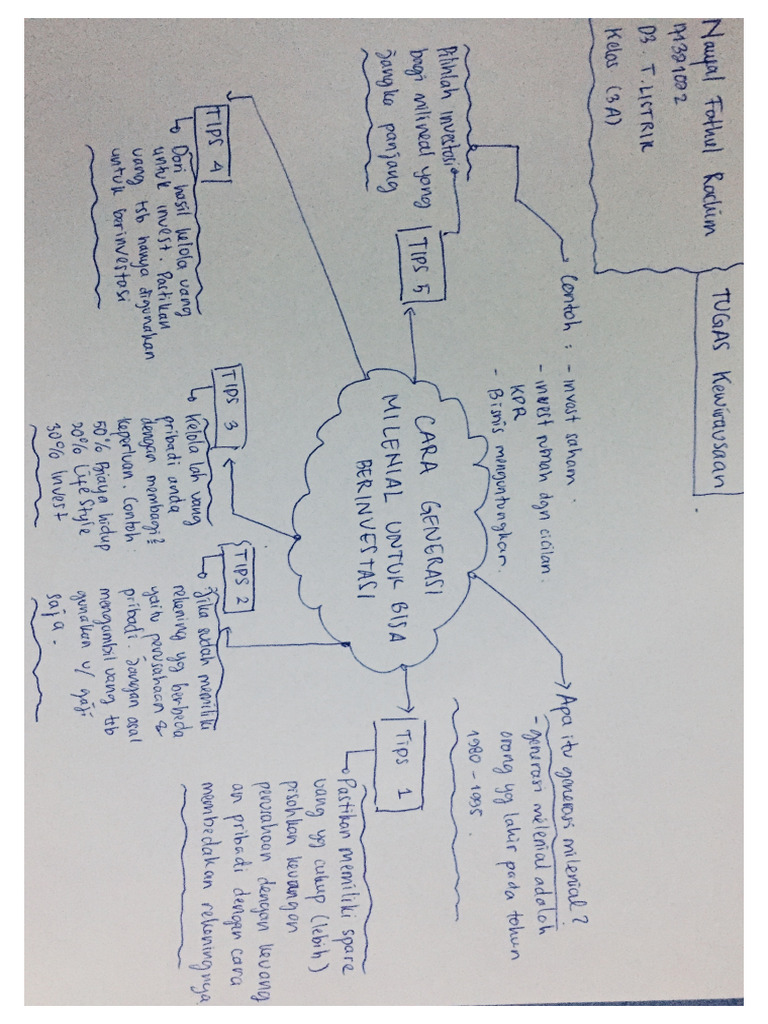 Nauful Fathul Rochim
D3. T. LISTRIK
Kelas (3A)
TUGAS Kewirausaan
CARA GENERASI
MILENIAL UNTUK BISA
BERINVESTASI
Apa itu generasi milenial?
- generasi milenial adaloh
orang yg lahir pada tahun
1980 - 1995 .
Tips 1
Pastikan memiliki spare
uang yg cukup (lebih)
pisahkan keuangan
perusahaan dengan keuang
an pribadi dengan cara
membedakan rekeningnya
TIPS 2
Jika sudah memiliki
rekening yg berbeda
yaitu perusahaan &
pribadi. Jangan asal
mengambil uang tsb
gunakan u/ gaji
saja.
TIPS 3
Kelola lah uang
pribadi anda
dengan membagi²
keperluan. Contoh
50% Biaya hidup
20% Life Style
30% Invest
TIPS 4
Dari hasil kelola uang
untuk invest. Pastikan
uang tsb hanya digunakan
untuk berinvestasi
TIPS 5
Pilihlah investasi
bagi milineal yang
Jangka panjang
Contoh : - invast saham .
- invest rumah dgn cicilan.
KPR
- Bisnis menguntungkan.